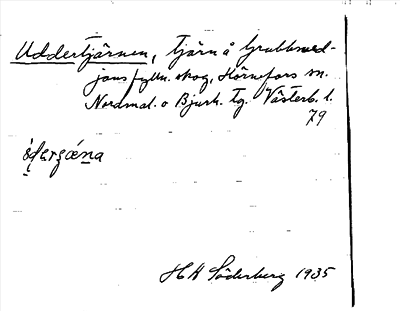 Uddertjärnen, tjärn å Grubbmed-
jans fylln. skog, Hörnefors sn.
Nordmal. o Bjurh. tg. Västerb. l.
79
H A Söderberg 1935